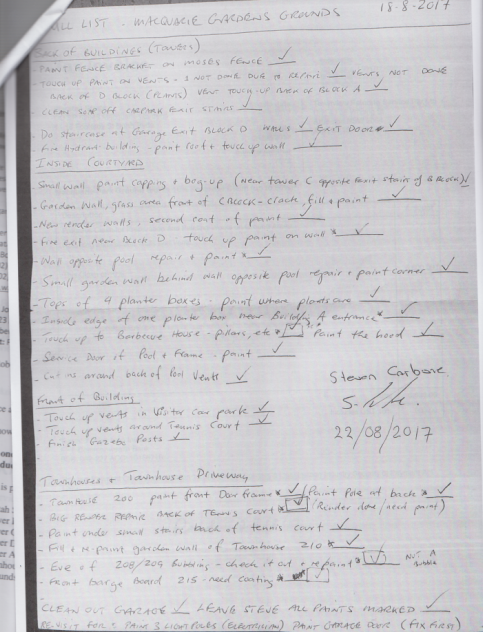 ALL LIST - MACQUARIE GARDENS GROUNDS 18-8-2017
BACK OF BUILDINGS (TOWERS)
- PAINT FENCE BRACKET ON MOSES FENCE ✓
- TOUCH UP PAINT ON VENTS - 3 NOT DONE DUE TO REPAIR ✓ VENTS NOT DONE
BACK OF D BLOCK (PLANTS) VENT TOUCH-UP BACK OF BLOCK A ✓
- CLEAN OFF CARPARK EXIT ✓
- Do staircase at Garage Exit Block D WALLS ✓ EXIT DOOR ✓
- Fire Hydrant building - paint roof + touch up wall ✓
INSIDE COURTYARD
- Small wall paint capping + bog-up (Near tower C opposite exit stairs of B Block) ✓
- Garden Wall, grass area front of C Block - crack, fill + paint ✓
- New render walls, second coat of paint ✓
- Fire exit near Block D touch up paint on wall * ✓
- Wall opposite pool repair + paint * ✓
- Small garden wall behind wall opposite pool repair + paint corner ✓
- Tops of 4 planter boxes - paint where plants are ✓
- Inside edge of one planter box near Building A entrance * ✓
- Touch up to Barbecue House - pillars, etc * ✓ Paint the hood ✓
- Service Door of Pool + Frame - paint ✓
- Cut ins around back of Pool Vents ✓
Steven Carbone
Front of Building
- Touch up vents in Visitor car park ✓
- Touch up vents around Tennis Court ✓
- Finish Gazebo Posts ✓
22/08/2017
Townhouses + Townhouse Driveway
- Townhouse 200 paint front Door frame * ✓ / Paint Pole at back * ✓
- BIG RENDER REPAIR BACK OF TENNIS COURT * ✓ (Render done / need paint)
- Paint under small stairs back of tennis court ✓
- Fill + re-paint garden wall of Townhouse 210 * ✓
- Eve of 208/209 Building - check it out + repaint * ✓ Not A
- Front barge Board 215 - need coating * ✓
CLEAN OUT GARAGE ✓ LEAVE STEVE ALL PAINTS MARKED ✓
RE-VISIT FOR PAINT 3 LIGHT POLES (ELECTRICIAN) PAINT GARAGE DOOR (FIX FIRST)